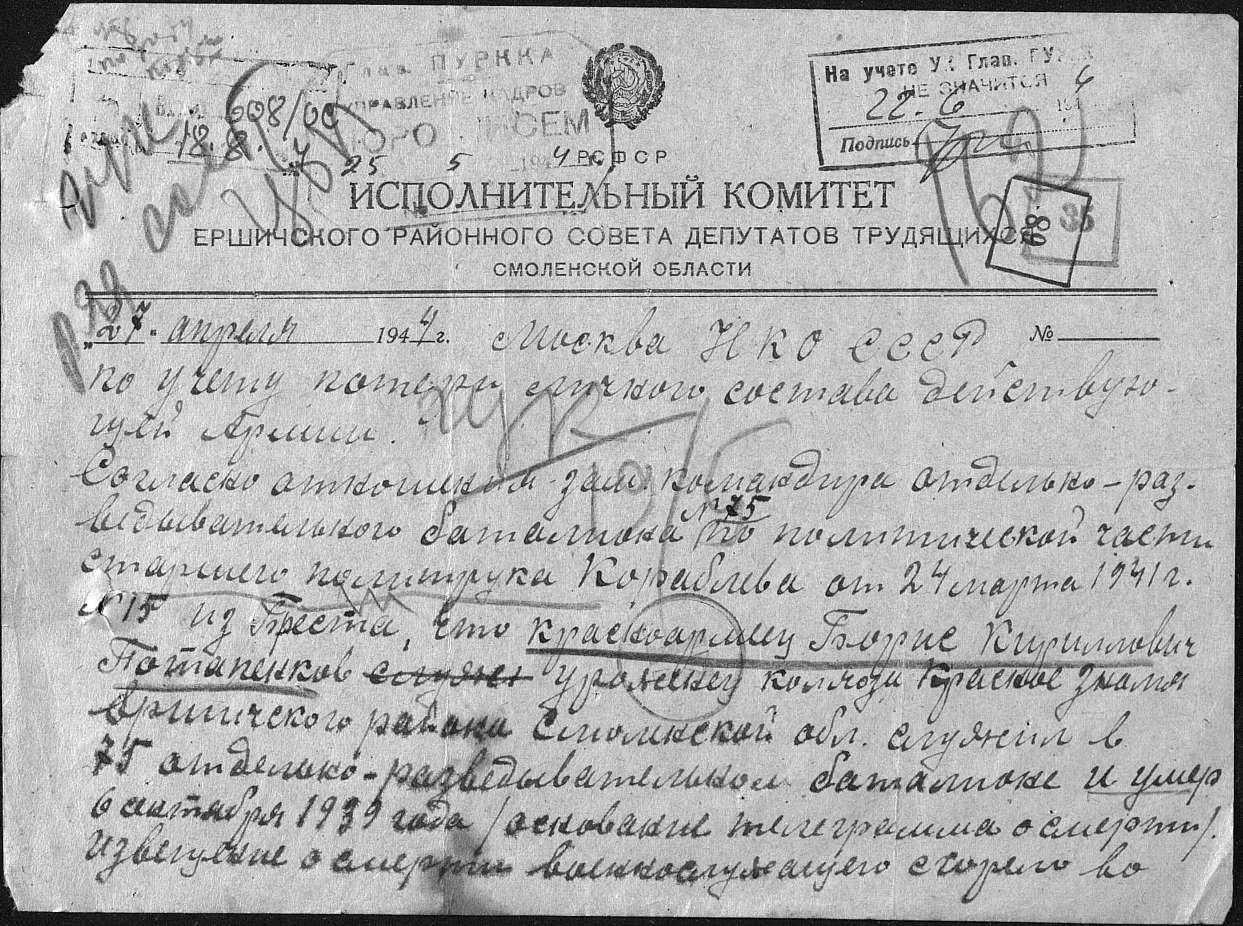 Глав. ПУРККА
УПРАВЛЕНИЕ КАДРОВ
БЮРО ПИСЕМ
608/ос
18. 8.
25 5 194
На учете УК Глав. ГУ
НЕ ЗНАЧИТСЯ
22. 6 194
Подпись
РСФСР
ИСПОЛНИТЕЛЬНЫЙ КОМИТЕТ
ЕРШИЧСКОГО РАЙОННОГО СОВЕТА ДЕПУТАТОВ ТРУДЯЩИХСЯ
СМОЛЕНСКОЙ ОБЛАСТИ
08.
35
„27" апреля 1944 г. Москва НКО СССР №
по учету потерь личного состава действую-
щей Армии.
Согласно отношения зам командира отдельно-раз-
ведывательного баталиона №75 по политической части
старшего политрука Кораблева от 24 марта 1941 г.
№15 из Бреста, что красноармеец Борис Кириллович
Потапенков служил уроженец колхоза Красное Знамя
Ершичского района Смоленской обл. служил в
75 отдельно-разведывательном баталионе и умер
6 октября 1939 года /основание телеграмма о смерти/.
Извещение о смерти военнослужащего сгорело во